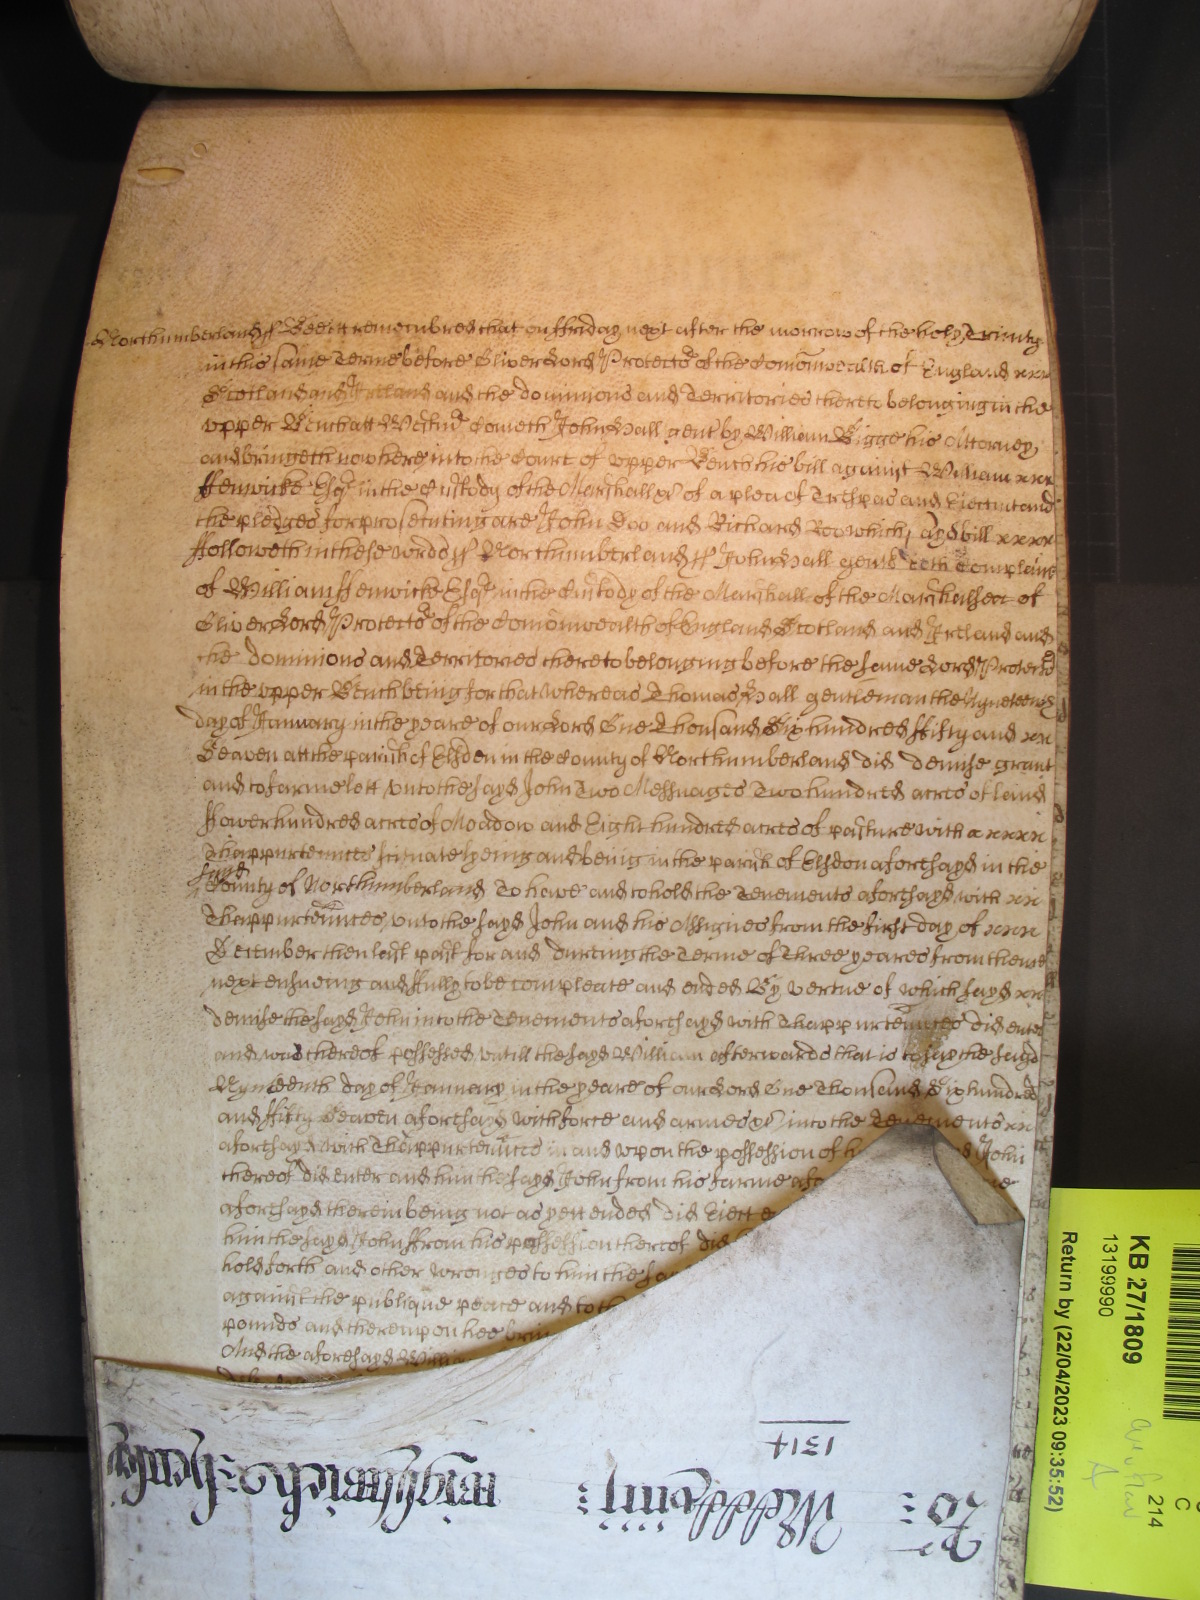 Northumberland ss Bee itt remembred that on ffriday next after the morrow of the holy Trinity
in this same Terme before Oliver Lord Protector of the Comonwealth of England xxx
Scotland and Ireland and the dominions and Territories thereto belonging in the
upper Bench att Westmr Cometh John Hall gent by William Bigge his Attorney
and bringeth now here into the Court of upper Bench his bill against William xxx
ffenwicke Esqr in the Custody of the Marshall &c of a plea of Trespas and Eiectmt and
the pledges for prosecuting are John Doo and Richard Roo which sayd bill xxxx
ffolloweth in these words ss Northumberland ss John Hall gent doth Complaine
of William ffenwicke Esqr in the Custody of the Marshall of the Marshalsea of
Oliver Lord Protector of the Comonwealth of England Scotland and Ireland and
the dominions and Territories thereto belonging before the same Lord Protector
in the upper Bench being for that whereas Thomas Hall gentleman the Nyneteenth
day of January in the yeare of our Lord One Thousand Six hundred ffifty and xx
Seaven att the parish of Elsden in the County of Northumberland did demise grant
and to farme lett unto the sayd John Two Messuages Two hundred acres of land
ffower hundred acres of Meadow and Eight hundred acres of pasture with xxxxx
Thappurtennces scituate lyeing and being in the parish of Elsdon aforesayd in the
sayd
County of Northumberland To have and to hold the Tenements aforesayd with xx
Thappurtennces unto the sayd John and his Assignes from the first day of xxx
December then last past for and dureing the Terme of Three yeares from thence
next ensueing and ffully to be compleate and ended By vertue of which sayd xx
demise the sayd John into the Tenements aforesayd with Thappurtennces did enter
and was thereof possessed untill the sayd William afterwards that is to say the sayd
Nynteenth day of January in the yeare of our Lord One Thousand Six hundred
and ffifty Seaven aforesayd with force and armes &c into the Tenements xx
aforesayd with Thappurtennces in and upon the possession of John
thereof did enter and him the sayd John from his farme
aforesayd therein being not as yett ended did Eiect
him the sayd John ffrom his possession thereof did
hold forth and other wronges to him the
against the publique peace and to
pounds and thereupon hee
And the aforesayd
1314
Ro
KB 27/1809
13199990
Return by (22/04/2023 09:35:52)
214
C
A